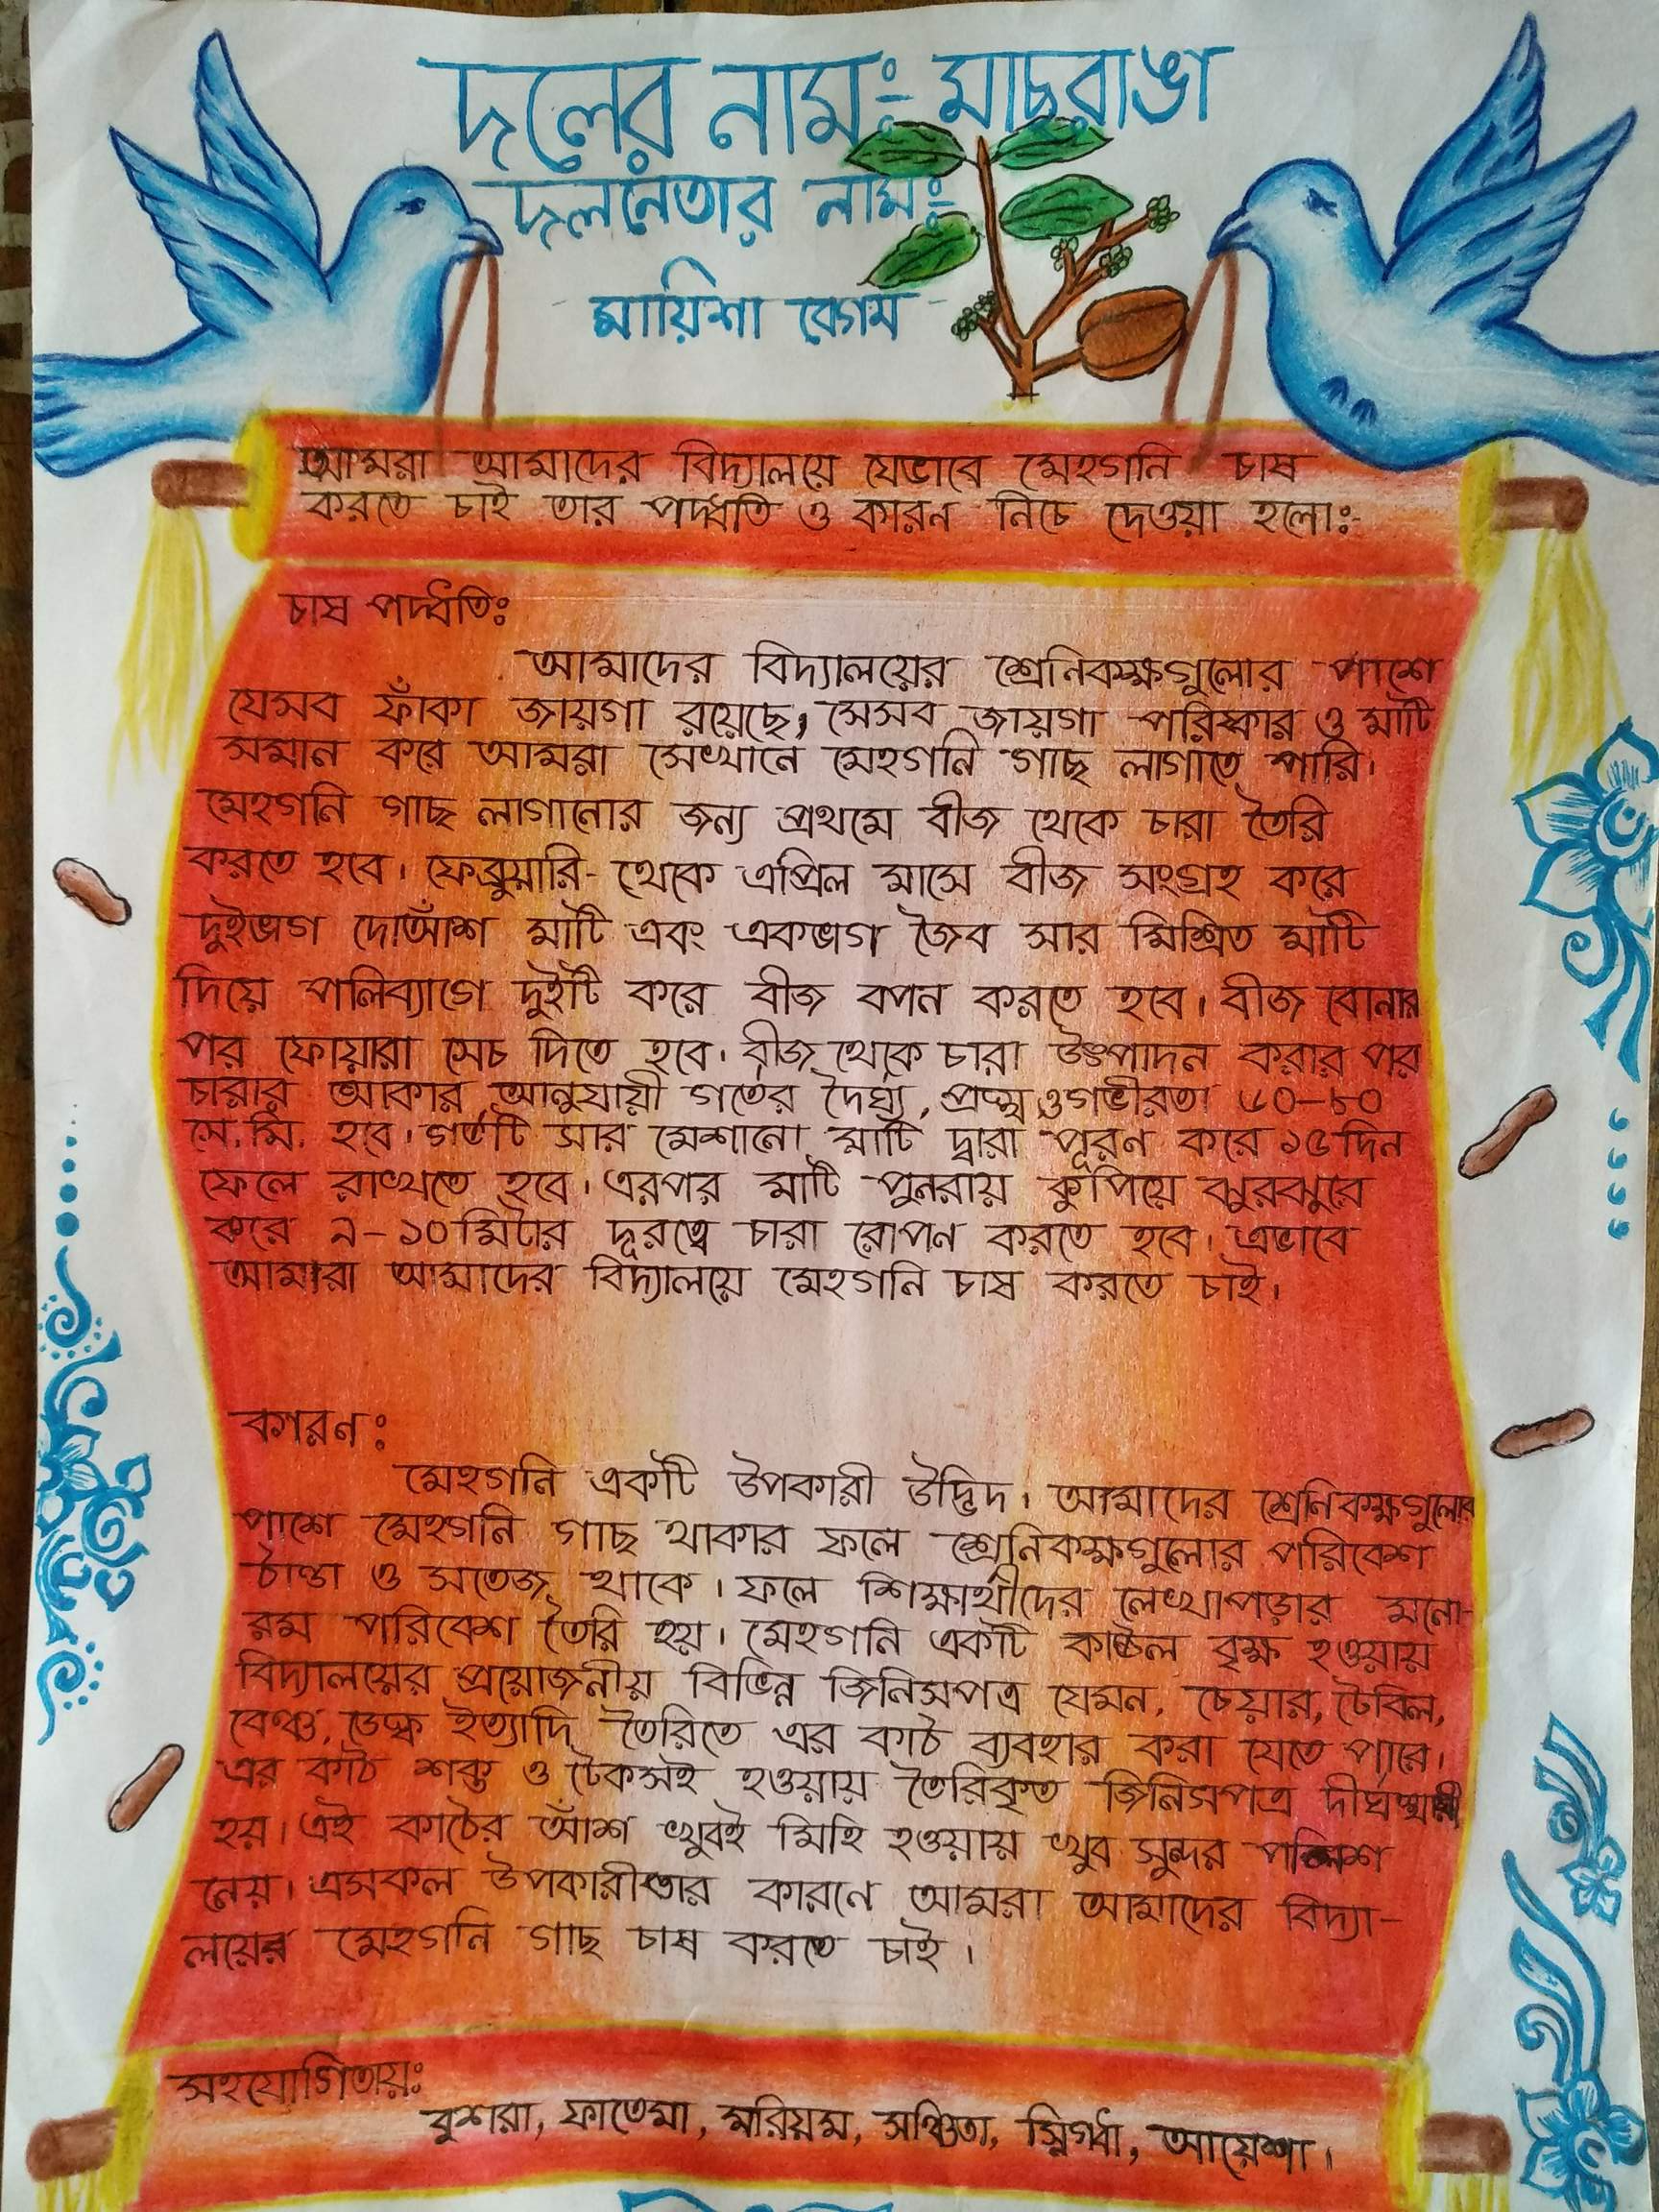 দলের নাম:- মাছরাঙা
দলনেতার নাম:-
মায়িশা বেগম
আমরা আমাদের বিদ্যালয়ে যেভাবে মেহগনি চাষ
করতে চাই তার পদ্ধতি ও কারন নিচে দেওয়া হলো:-
চাষ পদ্ধতিঃ
আমাদের বিদ্যালয়ের শ্রেনিকক্ষগুলোর পাশে
যেসব ফাঁকা জায়গা রয়েছে, সেসব জায়গা পরিষ্কার ও মাটি
সমান করে আমরা সেখানে মেহগনি গাছ লাগাতে পারি।
মেহগনি গাছ লাগানোর জন্য প্রথমে বীজ থেকে চারা তৈরি
করতে হবে। ফেব্রুয়ারি- থেকে এপ্রিল মাসে বীজ সংগ্রহ করে
দুইভাগ দোআঁশ মাটি এবং একভাগ জৈব সার মিশ্রিত মাটি
দিয়ে পলিব্যাগে দুইটি করে বীজ বপন করতে হবে। বীজ বোনার
পর ফোয়ারা সেচ দিতে হবে। বীজ থেকে চারা উৎপাদন করার পর
চারার আকার আনুযায়ী গর্তের দৈর্ঘ্য, প্রস্থ ও গভীরতা ৬০-৮০
সে.মি. হবে। গর্তটি সার মেশানো মাটি দ্বারা পূরণ করে ১৫ দিন
ফেলে রাখতে হবে। এরপর মাটি পুনরায় কুপিয়ে ঝুরঝুরে
করে ৯-১০ মিটার দূরত্বে চারা রোপণ করতে হবে। এভাবে
আমারা আমাদের বিদ্যালয়ে মেহগনি চাষ করতে চাই।
কারন:
মেহগনি একটি উপকারী উদ্ভিদ। আমাদের শ্রেণিকক্ষগুলোর
পাশে মেহগনি গাছ থাকার ফলে শ্রেনিকক্ষগুলোর পরিবেশ
ঠাণ্ডা ও সতেজ থাকে। ফলে শিক্ষার্থীদের লেখাপড়ার মনো-
রম পরিবেশ তৈরি হয়। মেহগনি একটি কাষ্ঠল বৃক্ষ হওয়ায়
বিদ্যালয়ের প্রয়োজনীয় বিভিন্ন জিনিসপত্র যেমন, চেয়ার, টেবিল,
বেঞ্চ, ডেস্ক ইত্যাদি তৈরিতে এর কাঠ ব্যবহার করা যেতে পারে।
এর কাঠ শক্ত ও টেকসই হওয়ায় তৈরিকৃত জিনিসপত্র দীর্ঘস্থায়ী
হয়। এই কাঠের আঁশ খুবই মিহি হওয়ায় খুব সুন্দর পালিশ
নেয়। এসকল উপকারীতার কারনে আমরা আমাদের বিদ্যা-
লয়ের মেহগনি গাছ চাষ করতে চাই।
সহযোগিতায়ঃ
বুশরা, ফাতেমা, মরিয়ম, সঞ্চিতা, স্নিগ্ধা, আয়েশা।